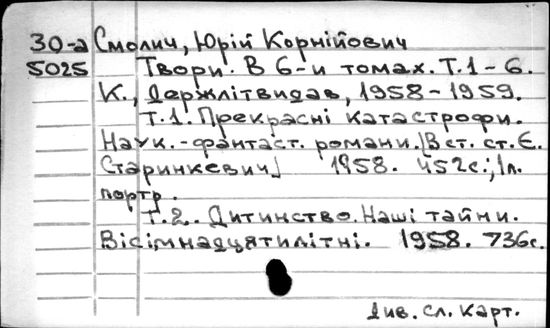 30-а Смолич, Юрій Корнійович
5025 Твори. В 6-и томах. Т.1-6.
К., Держлітвидав, 1958-1959.
Т.1. Прекрасні катастрофи.
Наук.-фантаст. романи. [Вст. ст. Є.
Старинкевич] 1958. 452с.; 1л.
портр.
Т.2. Дитинство. Наші тайни.
Вісімнадцятилітні. 1958. 736с.
Див. сл. карт.